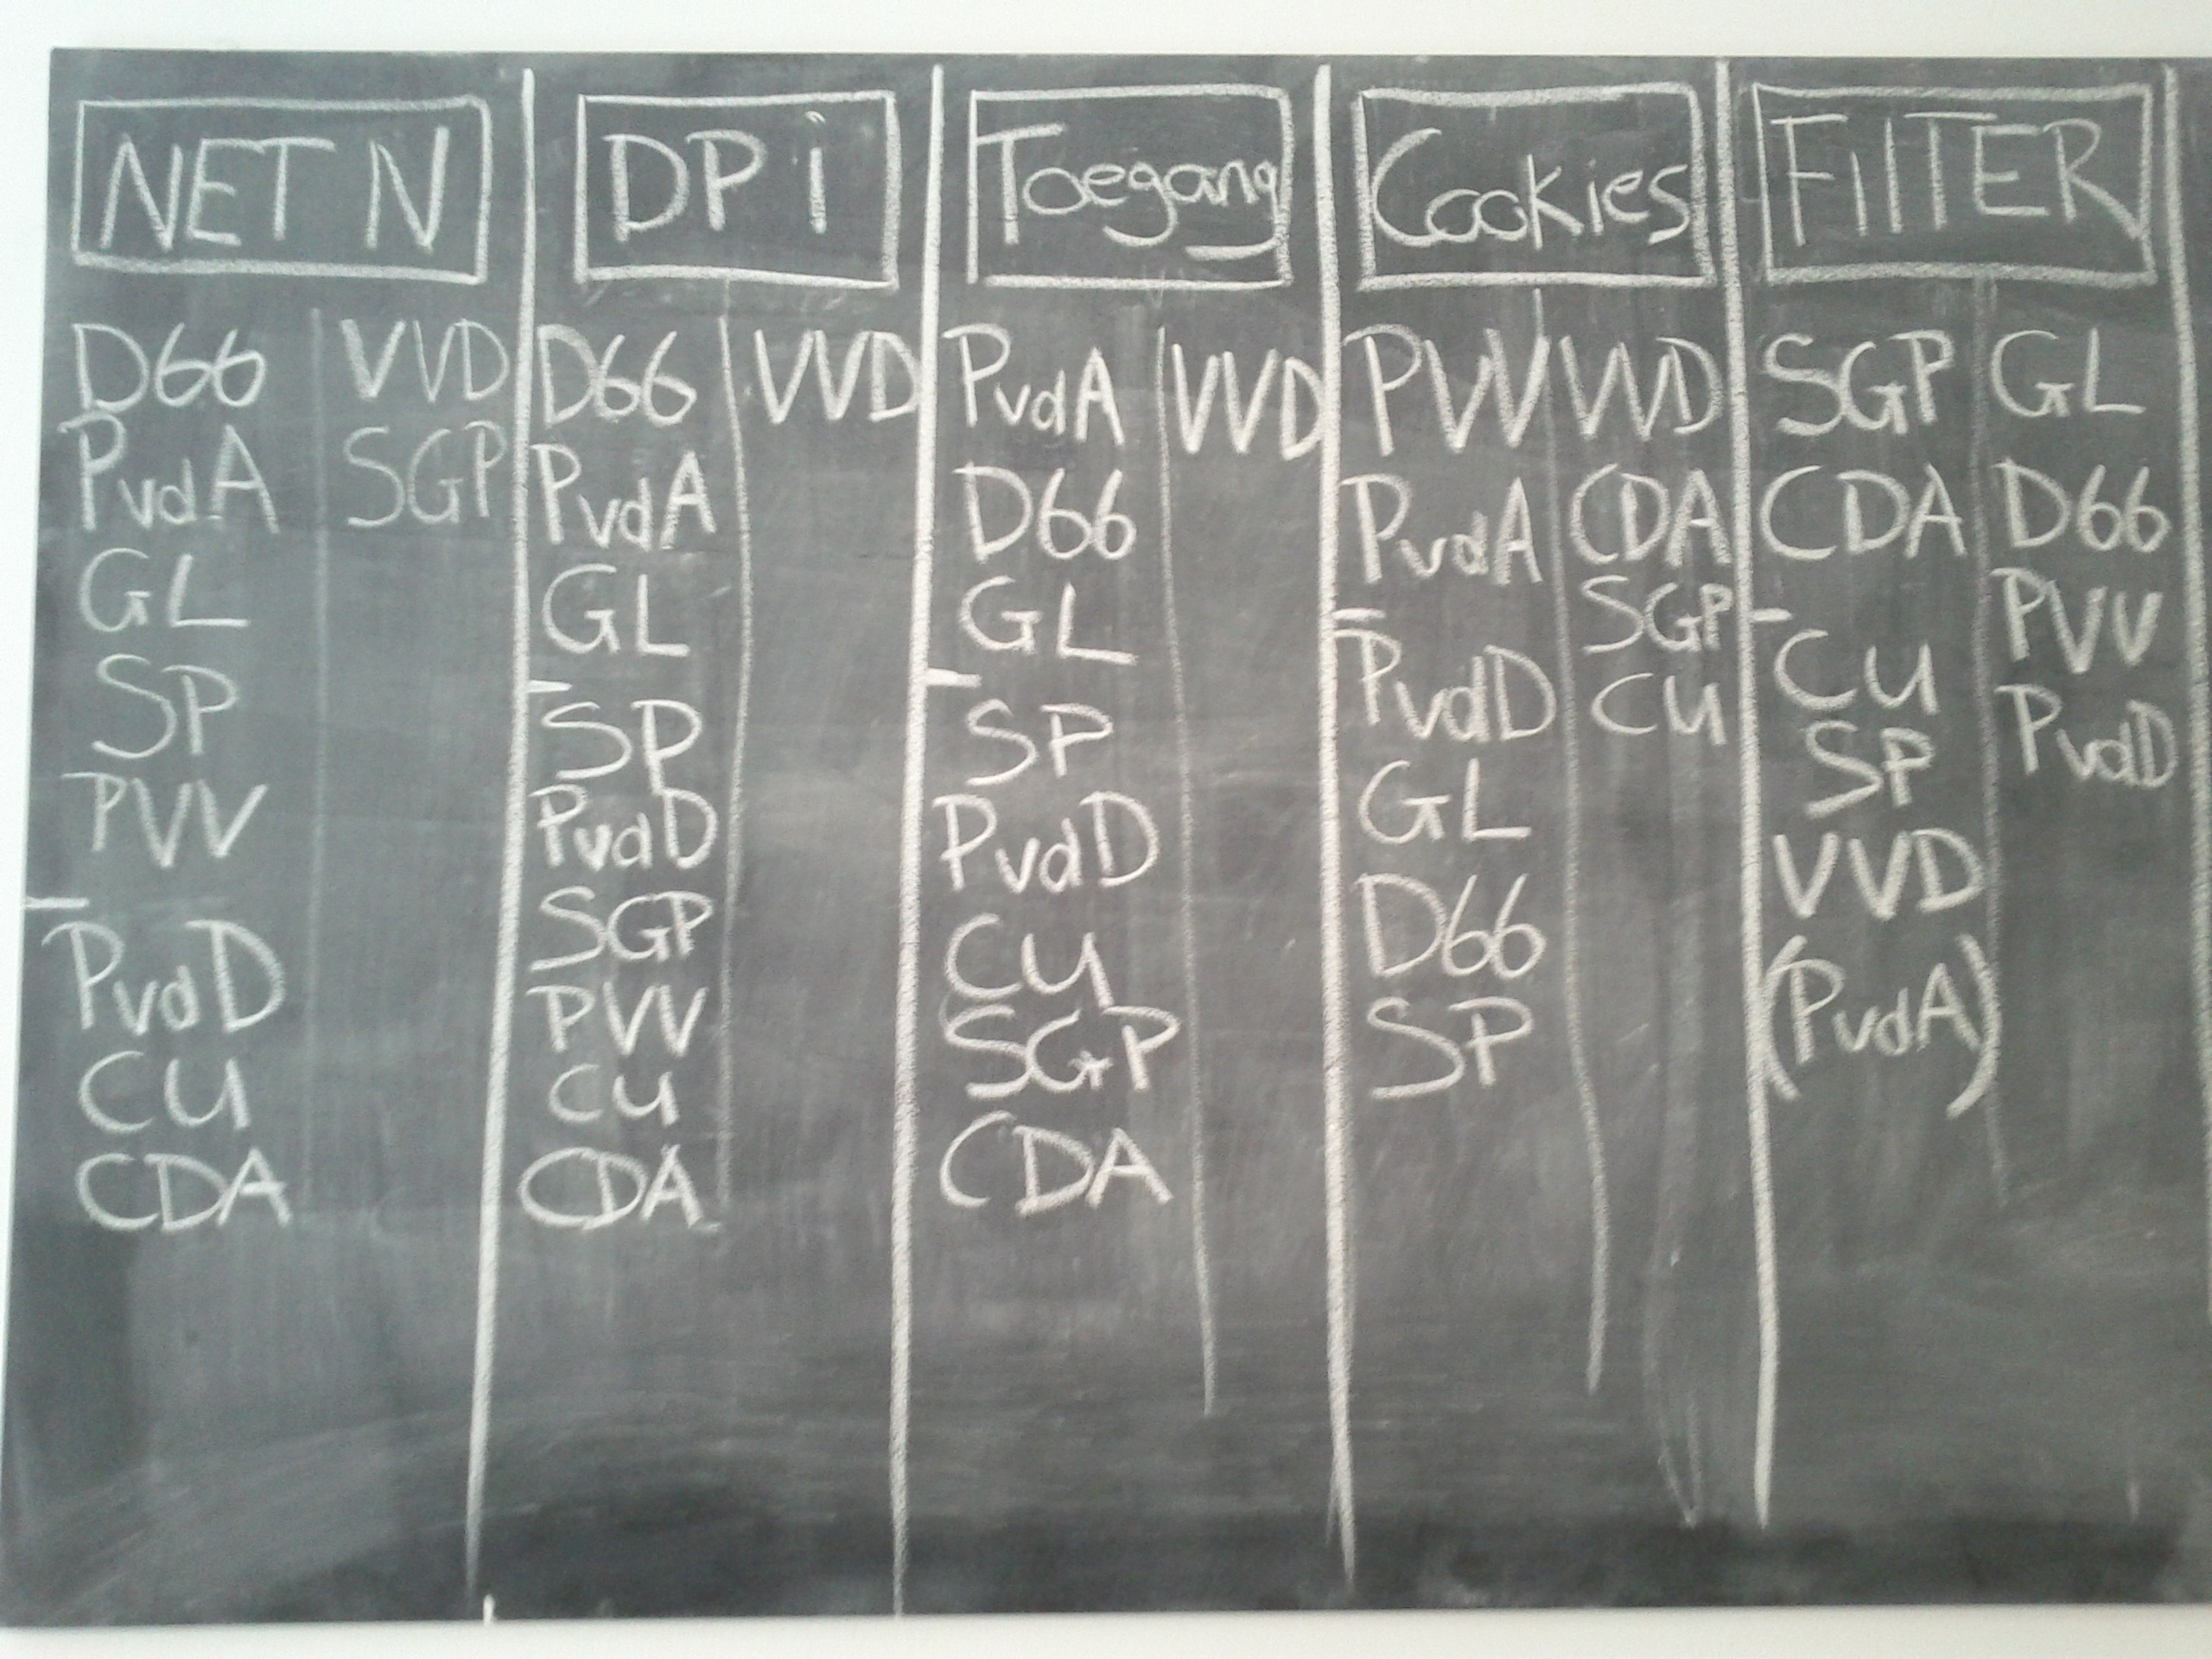 NET N
D66 VVD
PvdA SGP
GL
SP
PVV
PvdD
CU
CDA
DPi
D66 VVD
PvdA
GL
SP
PvdD
SGP
PVV
CU
CDA
Toegang
PvdA VVD
D66
GL
SP
PvdD
CU
SGP
CDA
Cookies
PVV VVD
PvdA CDA
SGP
PvdD CU
GL
D66
SP
FIlTER
SGP GL
CDA D66
CU PVV
SP PvdD
VVD
(PvdA)